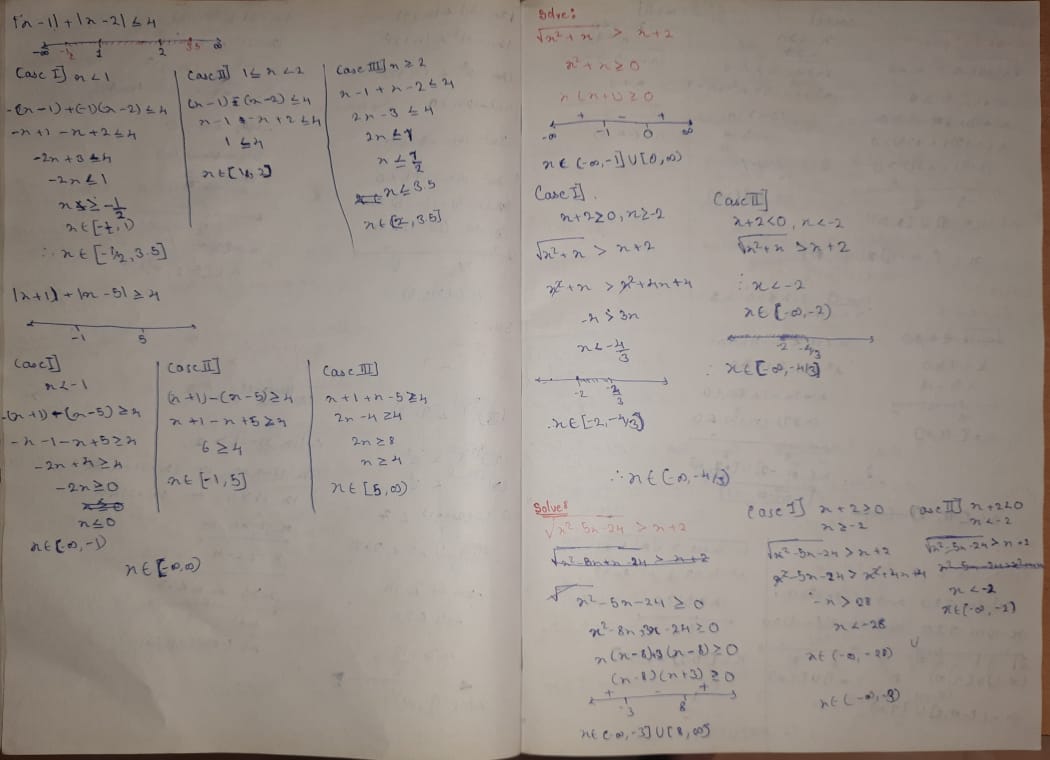 |x-1| + |x-2| ≤ 4
-∞ -½ 1 2 3.5 ∞
Case I] x < 1
-(x-1)+(-1)(x-2) ≤ 4
-x+1 -x+2 ≤ 4
-2x+3 ≤ 4
-2x ≤ 1
x ≥ -1/2
x ∈ [-½, 1)
∴ x ∈ [-½, 3.5]
Case II] 1 ≤ x < 2
(x-1) - (x-2) ≤ 4
x-1 -x+2 ≤ 4
1 ≤ 4
x ∈ [1, 2)
Case III] x ≥ 2
x-1 + x-2 ≤ 4
2x-3 ≤ 4
2x ≤ 7
x ≤ 7/2
x ≤ 3.5
x ∈ [2, 3.5]
|x+1| + |x-5| ≥ 4
-1 5
Case I]
x < -1
-(x+1) - (x-5) ≥ 4
-x-1-x+5 ≥ 4
-2x+4 ≥ 4
-2x ≥ 0
x ≤ 0
x ∈ [-∞, -1)
Case II]
(x+1) - (x-5) ≥ 4
x+1-x+5 ≥ 4
6 ≥ 4
x ∈ [-1, 5]
Case III]
x+1+x-5 ≥ 4
2x-4 ≥ 4
2x ≥ 8
x ≥ 4
x ∈ [5, ∞)
x ∈ [-∞, ∞)
Solve:
√x²+x > x+2
x²+x ≥ 0
x(x+1) ≥ 0
+ - +
-∞ -1 0 ∞
x ∈ (-∞, -1] ∪ [0, ∞)
Case I]
x+2 ≥ 0, x ≥ -2
√x²+x > x+2
x²+x > x²+4x+4
x < -4/3
-2
∴ x ∈ [-2, -4/3]
Case II]
x+2 < 0, x < -2
√x²+x > x+2
∴ x < -2
x ∈ [-∞, -2)
-2 -4/3
∴ x ∈ [-∞, -4/3]
∴ x ∈ (-∞, -4/3)
Solve:
√x²-5x-24 > x+2
x²-5x-24 ≥ 0
x²-8x+3x-24 ≥ 0
x(x-8)+3(x-8) ≥ 0
(x-8)(x+3) ≥ 0
+ - +
-3 8
x ∈ (-∞, -3] ∪ [8, ∞)
Case I] x+2 ≥ 0
x ≥ -2
√x²-5x-24 > x+2
x²-5x-24 > x²+4x+4
x < -28
x ∈ (-∞, -28)
Case II] x+2 < 0
x < -2
√x²-5x-24 > x+2
x < -2
x ∈ (-∞, -2)
∪
x ∈ (-∞, -3)